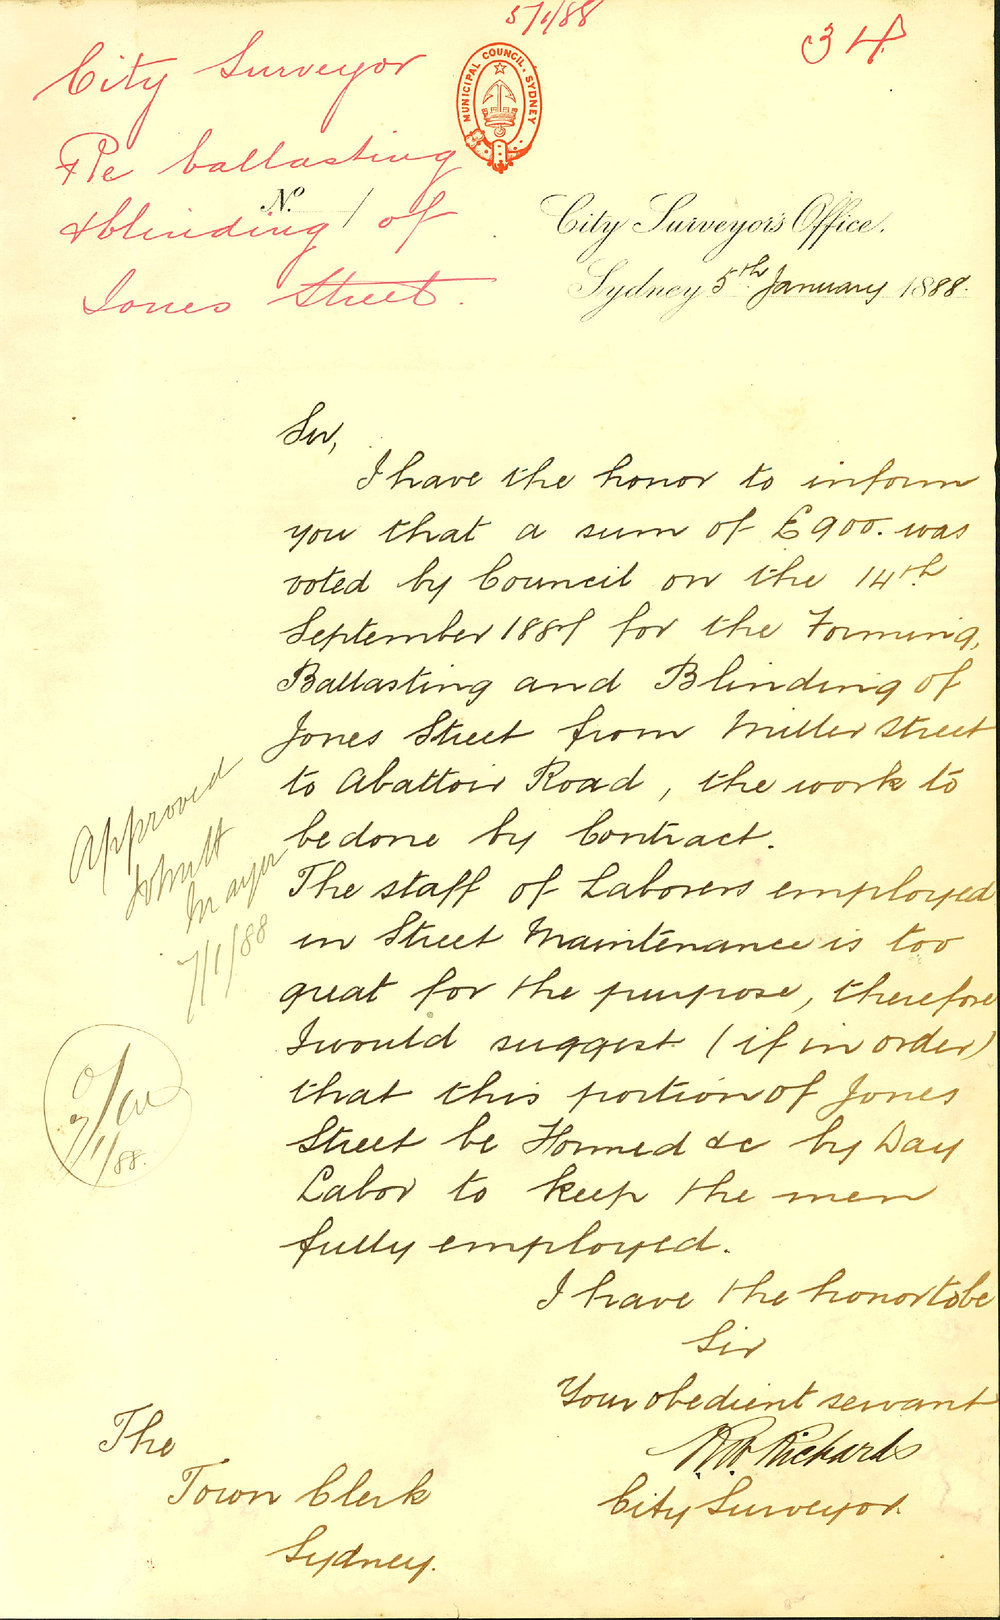 5/1/88
34
City Surveyor
Re ballasting
& blinding of
Jones Street.
MUNICIPAL COUNCIL. SYDNEY
No. 1
City Surveyor's Office.
Sydney 5th January 1888.
Sir,
I have the honor to inform
you that a sum of £900. was
voted by Council on the 14th
September 1887 for the Forming,
Ballasting and Blinding of
Jones Street from Miller Street
to Abattoir Road, the work to
be done by Contract.
The staff of Laborers employed
in Street Maintenance is too
great for the purpose, therefore
I would suggest (if in order)
that this portion of Jones
Street be Formed &c by Day
Labor to keep the men
fully employed.
I have the honor to be
Sir
Your obedient servant
R.W. Richards
City Surveyor.
The
Town Clerk
Sydney.
Approved
Mayor
7/1/88
7/1/88.